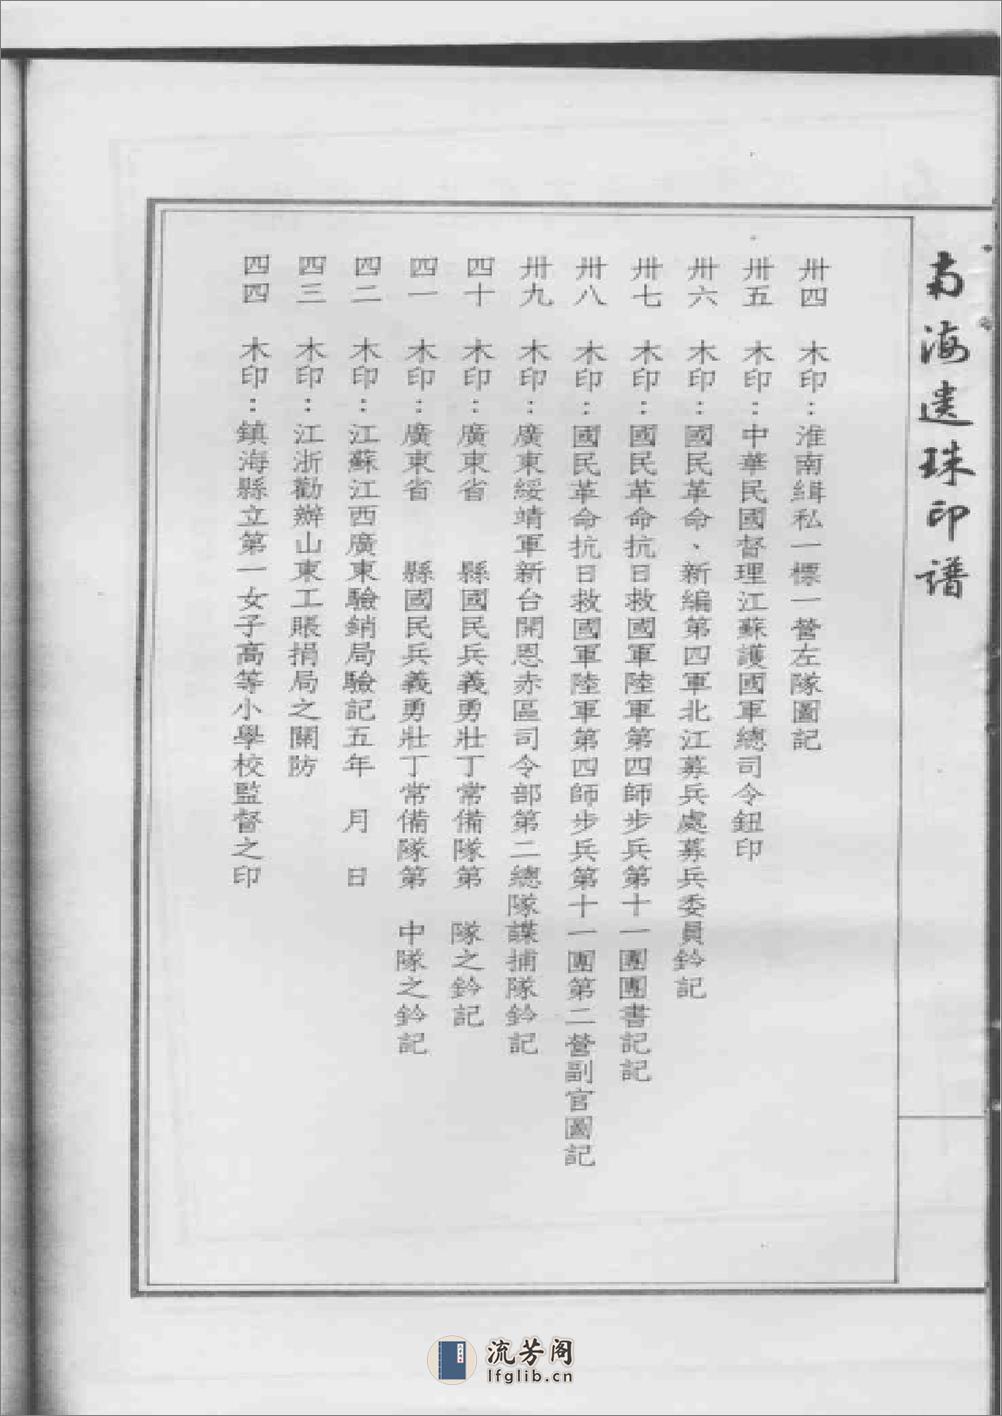 南海遗珠印谱
卅四　木印：淮南緝私一標一營左隊圖記
卅五　木印：中華民國督理江蘇護國軍總司令鈕印
卅六　木印：國民革命、新編第四軍北江募兵處募兵委員鈐記
卅七　木印：國民革命抗日救國軍陸軍第四師步兵第十一團團書記記
卅八　木印：國民革命抗日救國軍陸軍第四師步兵第十一團第二營副官圖記
卅九　木印：廣東綏靖軍新台開恩赤區司令部第二總隊諜捕隊鈐記
四十　木印：廣東省　　縣國民兵義勇壯丁常備隊第　隊之鈐記
四一　木印：廣東省　　縣國民兵義勇壯丁常備隊第　中隊之鈐記
四二　木印：江蘇江西廣東驗銷局驗記五年　月　日
四三　木印：江浙勸辦山東工賬捐局之關防
四四　木印：鎮海縣立第一女子高等小學校監督之印
流芳阁
lfglib.cn